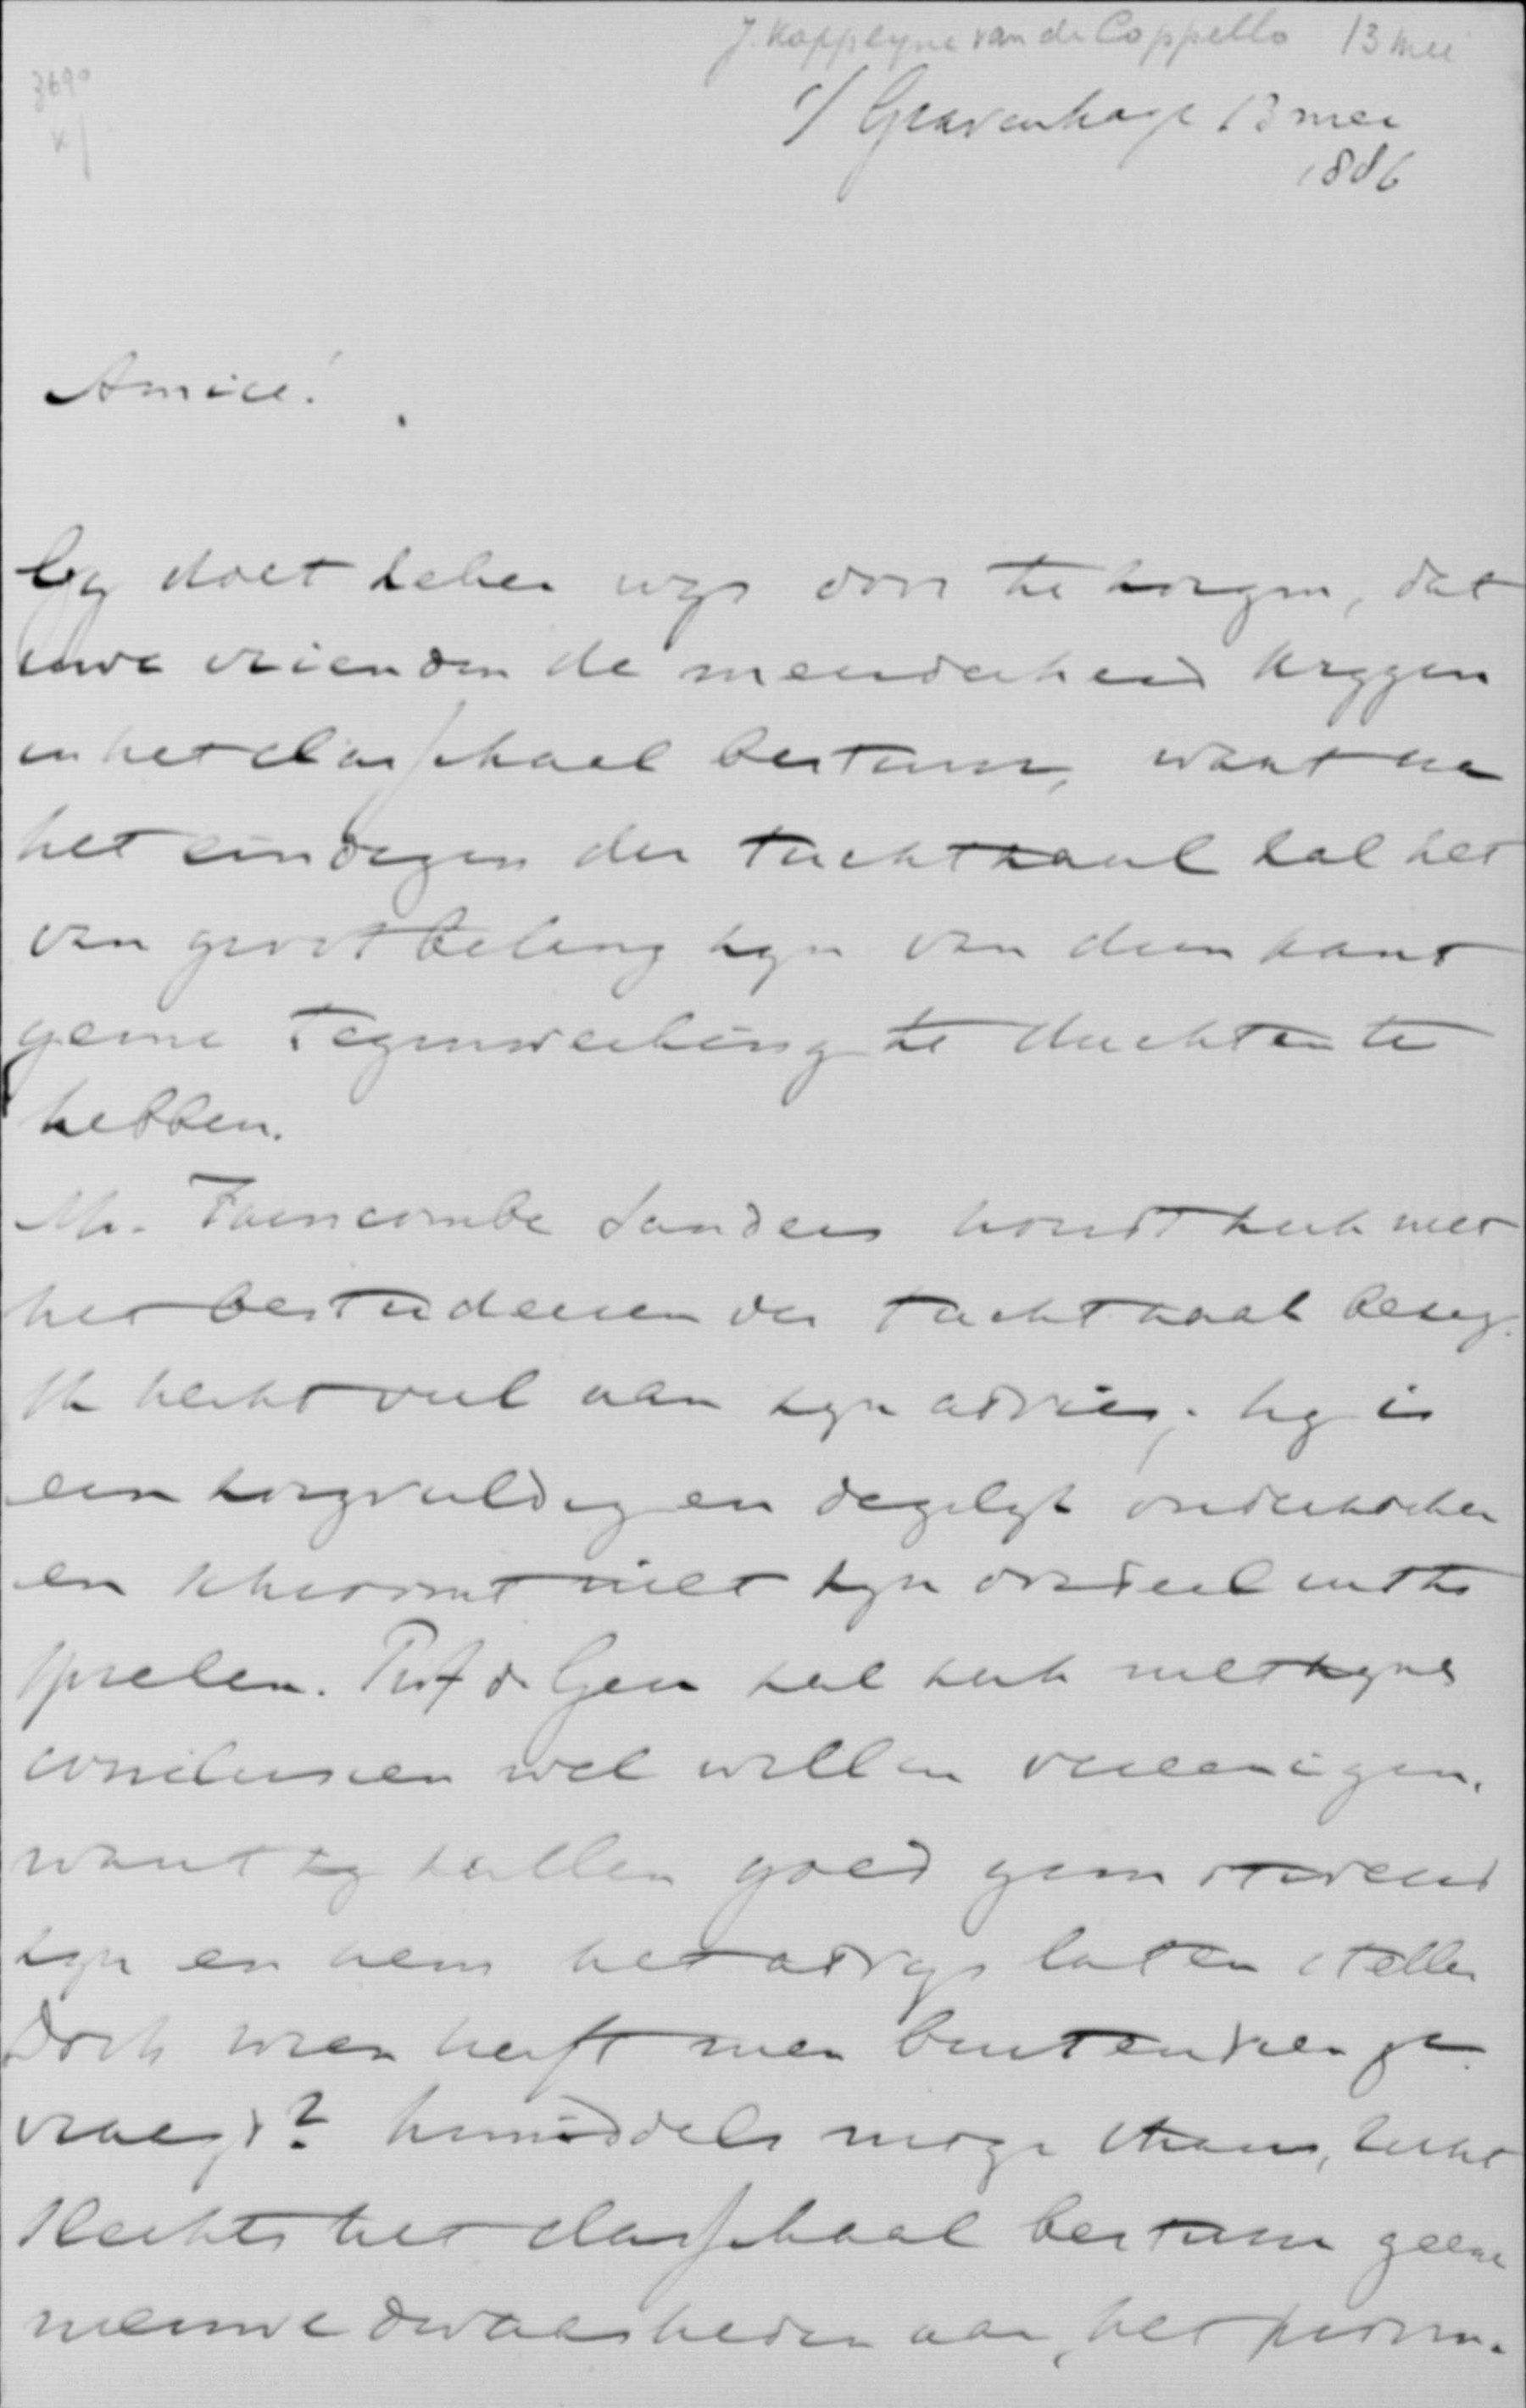 J. Kappeyne van de Coppello 13 mei
3690
x/
s/ Gravenhage 13 mei
1886
Amice!
Gij doet zeker wijs door te zorgen, dat
uwe vrienden de meerderheid krijgen
in het classikaal bestuur, want na
het eindigen der tuchtzaak zal het
van groot belang zijn van dien kant
geene tegenwerking te duchten te
hebben.
Mr. Faencombe Sanders houdt zich met
het bestudeeren der tuchtzaak bezig.
Ik hecht veel aan zijn advies; hij is
een zorgvuldig en degelijk onderzoeker
en schroomt niet zijn oordeel uit te
spreken. Prof de Geer zal zich met zijne
conclusien wel willen vereenigen,
want zij zullen goed gemotiveerd
zijn en hem het advijs laten stellen
Doch wien heeft men buitendien ge
vraagd? Inmiddels moge thans, recht
slechts het classikaal bestuur geene
nieuwe dwaasheden aan, het